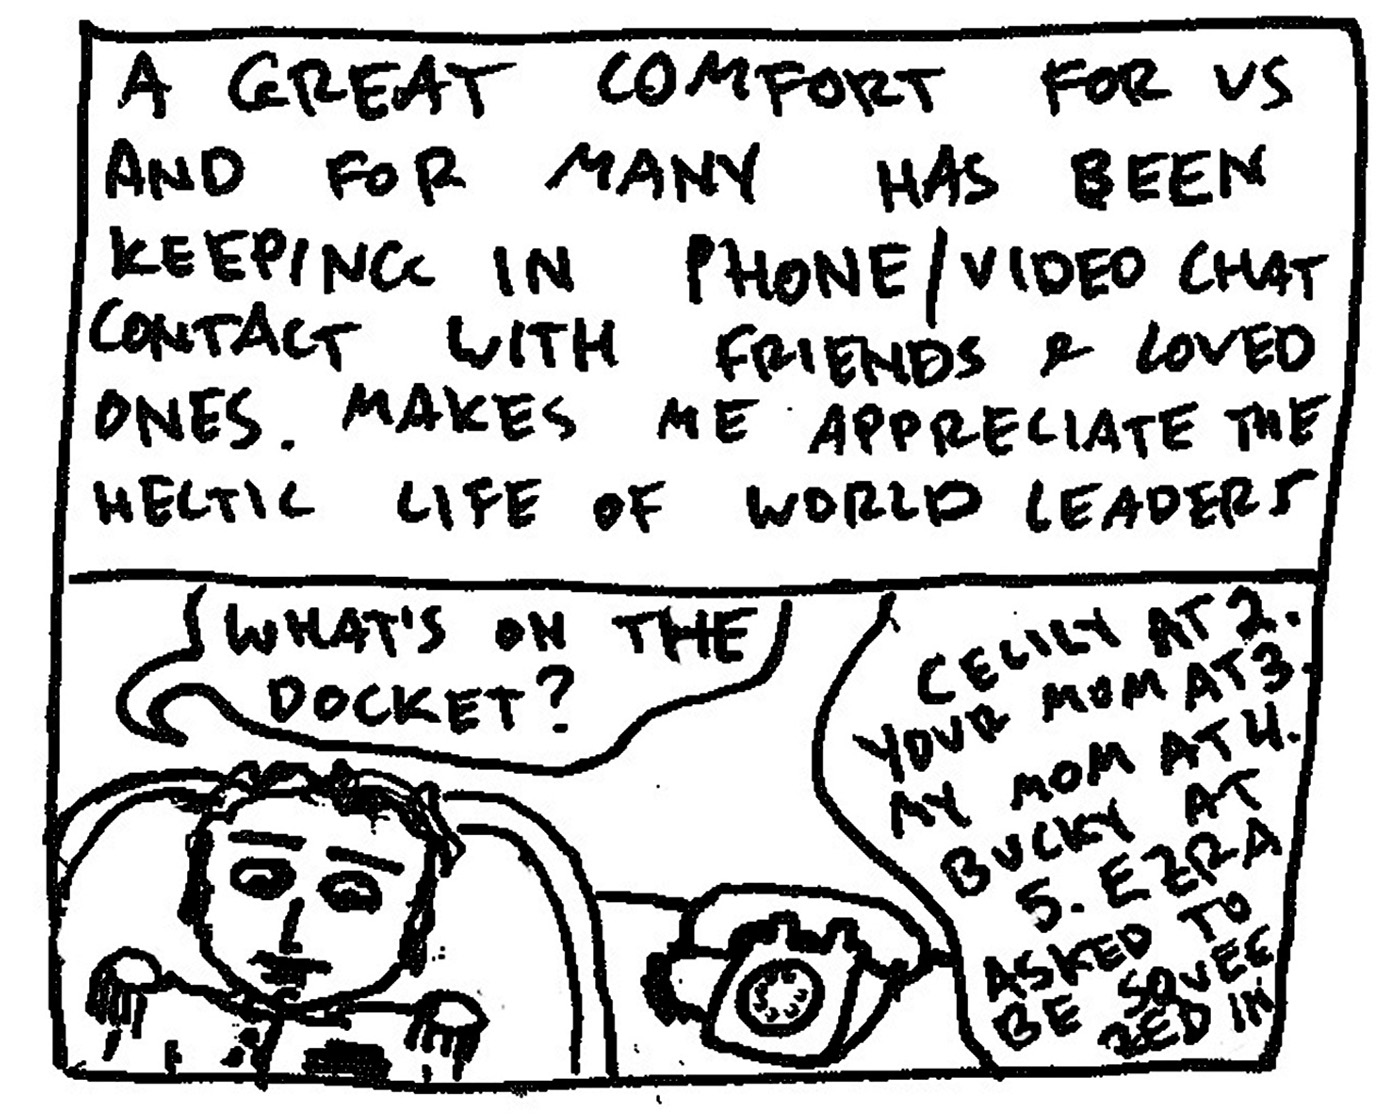 A GREAT COMFORT FOR US
AND FOR MANY HAS BEEN
KEEPING IN PHONE/VIDEO CHAT
CONTACT WITH FRIENDS & LOVED
ONES. MAKES ME APPRECIATE THE
HECTIC LIFE OF WORLD LEADERS
WHAT'S ON THE
DOCKET?
CECILY AT 2.
YOUR MOM AT 3.
MY MOM AT 4.
BUCKY AT
5. EZRA
ASKED TO
BE SQUEE
ZED IN